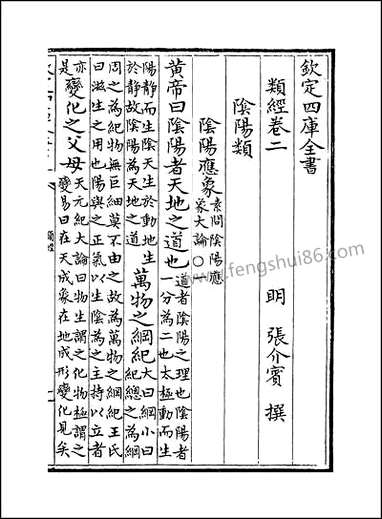 欽定四庫全書
類經卷二
明 張介賓 撰
陰陽類
陰陽應象 素問陰陽應象大論○一
黃帝曰陰陽者天地之道也 道者陰陽之理也陰陽者一分為二也太極動而生
陽静而生陰天生於動地生於静故陰陽為天地之道 萬物之綱紀 大曰綱小曰紀總之為綱
周之為紀物無巨細莫不由之故為萬物之綱紀王氏曰滋生之用也陽與之正氣以生陰為之主持以立者
亦是 變化之父母 天元紀大論曰物生謂之化物極謂之變易曰在天成象在地成形變化見矣
類經
www.fengshui86.com